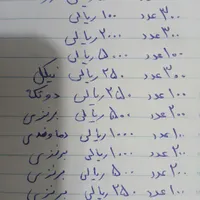 ۳۰۰ عدد ۱۰۰ ریالی
۳۰۰ عدد ۲۰۰۰ ریالی
۱۰۰ عدد ۵۰۰۰ ریالی
۳۰۰ عدد ۲۵۰ ریالی نیکل
۱۰۰ عدد ۲۵۰ ریالی دوتکه
۲۰۰ عدد ۵۰۰ ریالی برنزی
۱۰۰ عدد ۱۰۰۰ ریالی
۲۰۰ عدد ۱۰۰۰ ریالی برنزی
۲۰۰ عدد ۵۰۰ ریالی برنزی
۱۰۰ عدد ۲۵۰ ریالی برنزی